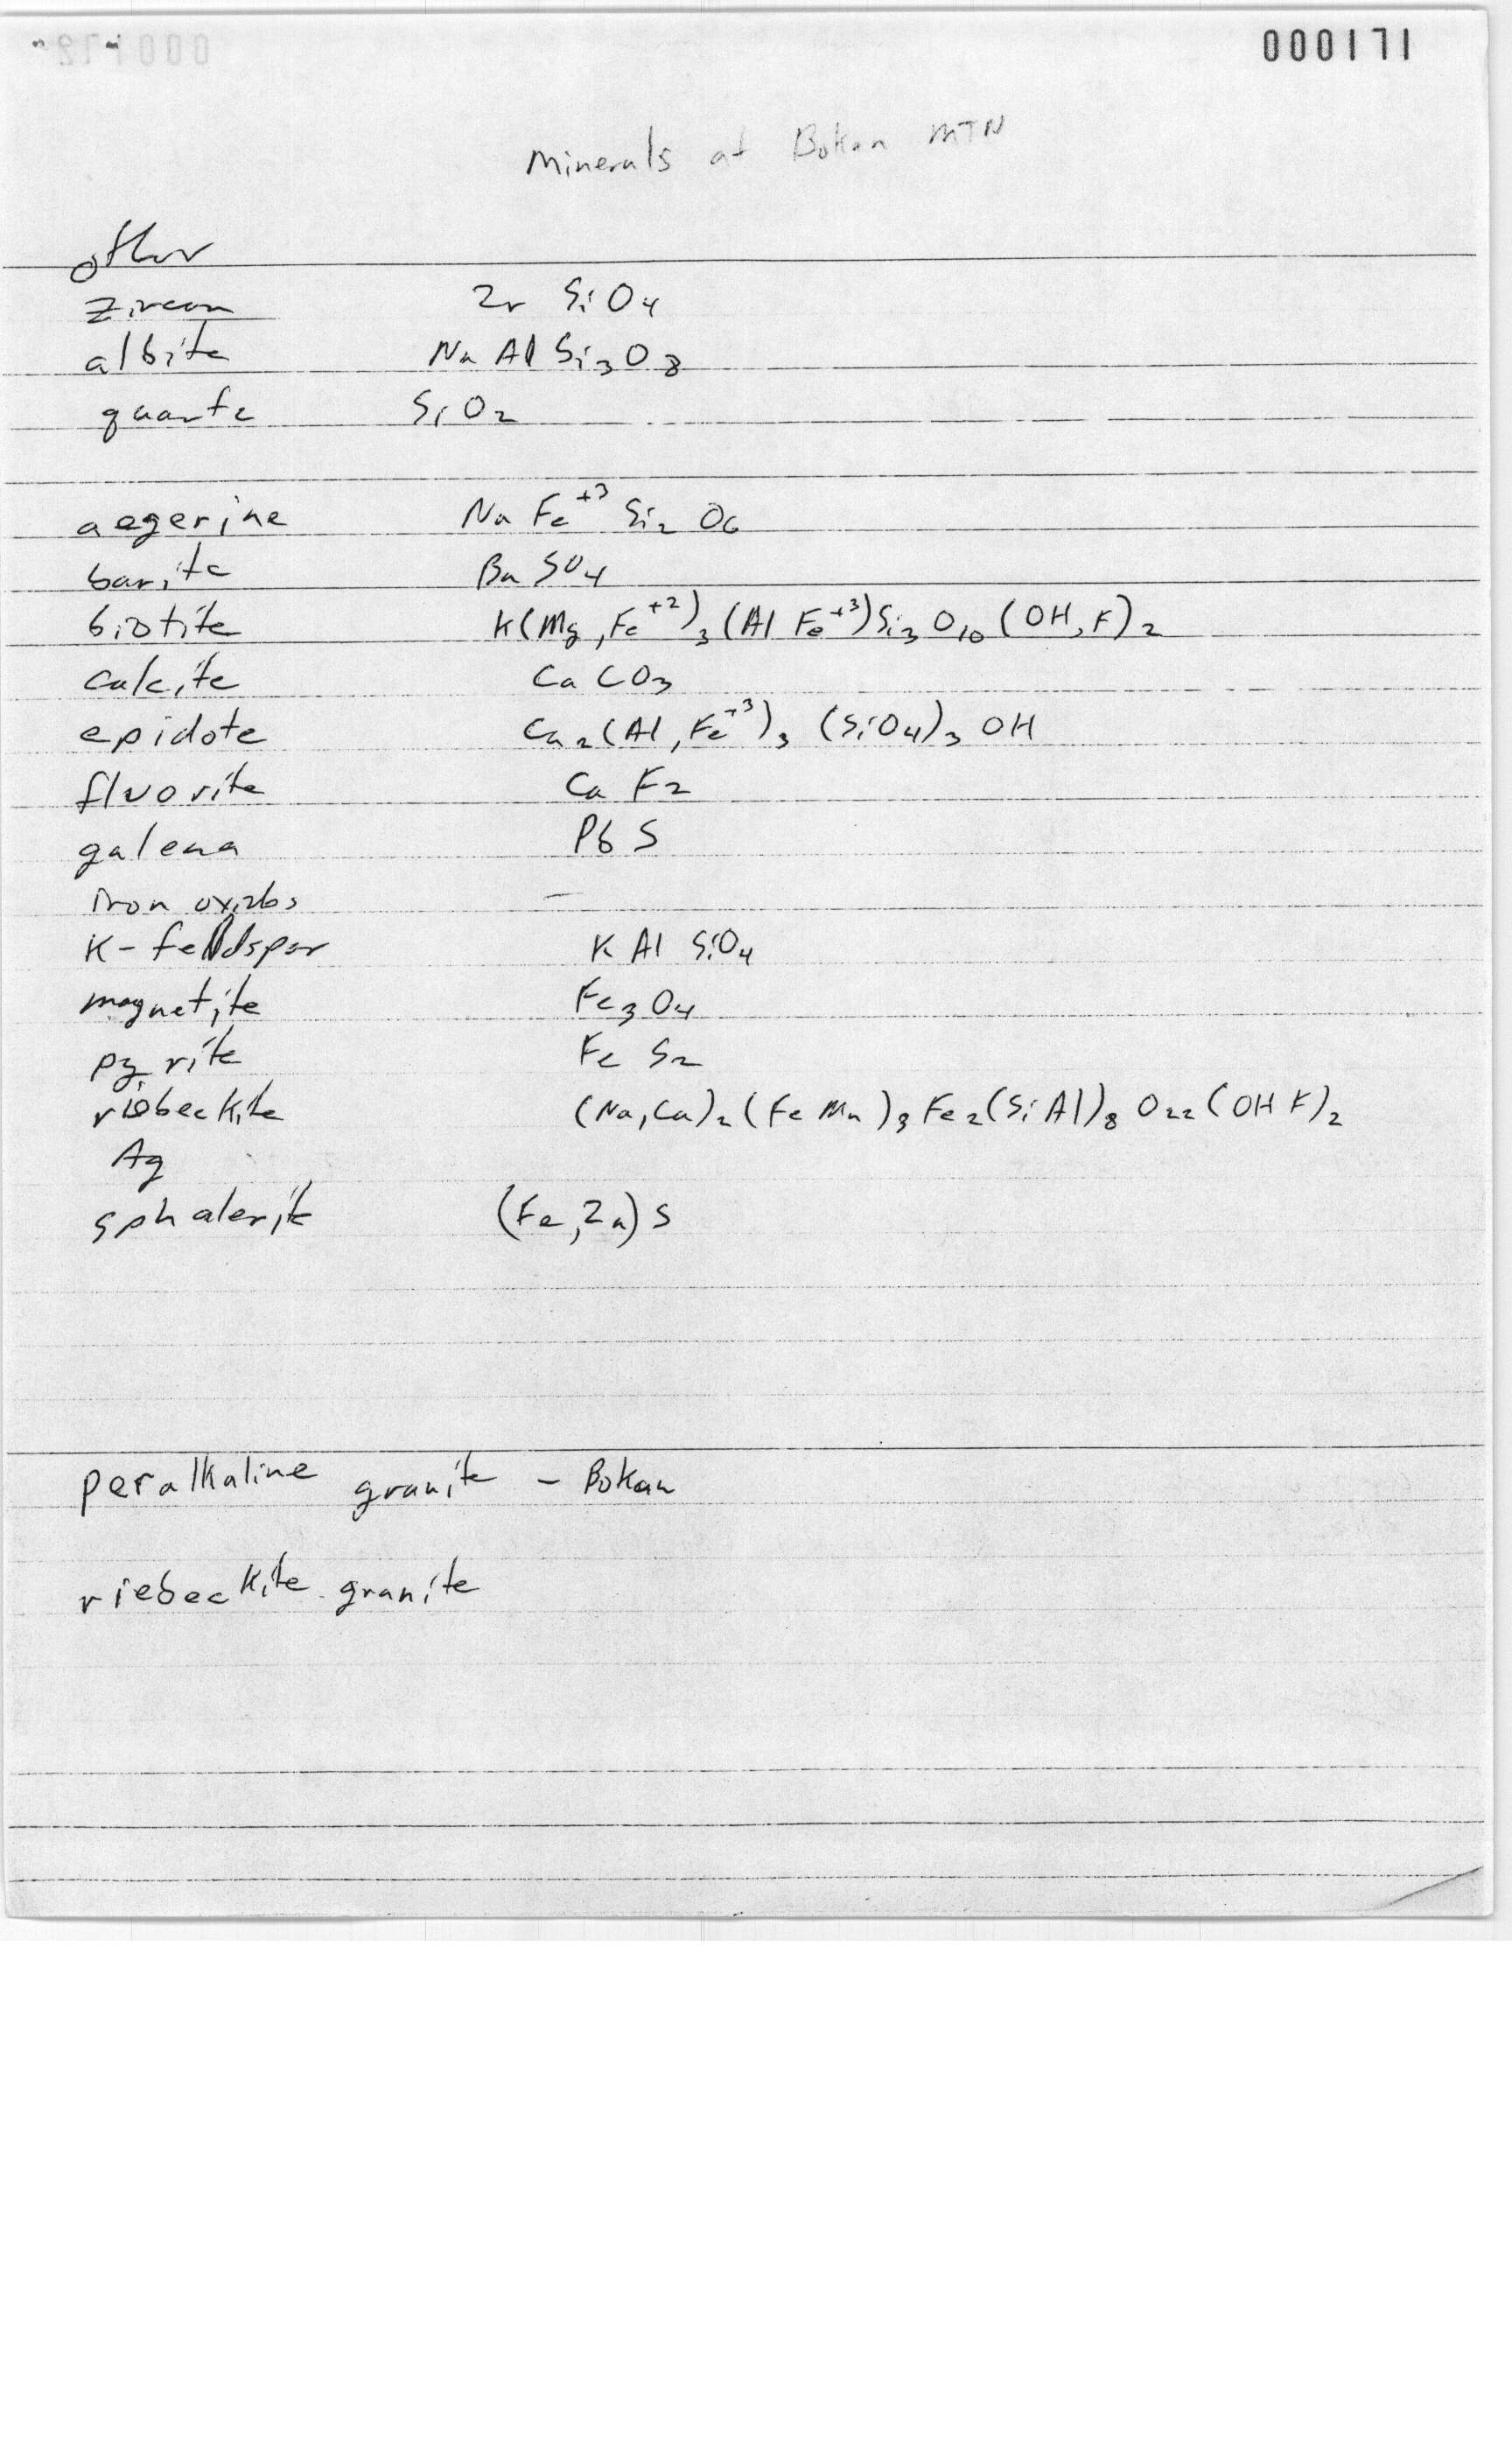 000171
Minerals at Bokan MTN
other
zircon Zr SiO4
albite Na Al Si3O8
quartz SiO2
aegerine Na Fe+3 Si2 O6
barite Ba SO4
biotite K(Mg,Fe+2)3(Al Fe+3)Si3O10(OH,F)2
calcite Ca CO3
epidote Ca2(Al,Fe+3)3 (SiO4)3 OH
fluorite Ca F2
galena Pb S
iron oxides —
K-feldspar K Al SiO4
magnetite Fe3O4
pyrite Fe S2
riebeckite (Na,Ca)2(Fe Mn)3Fe2(Si Al)8 O22(OH F)2
Ag
sphalerite (Fe,Zn)S
peralkaline granite - Bokan
riebeckite granite